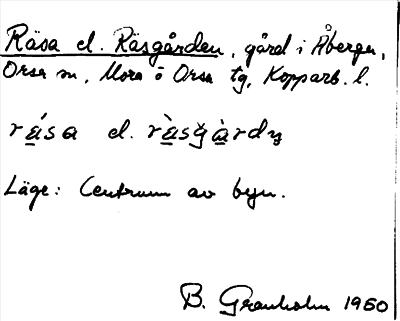 Räsa el. Räsgården, gård i Åberga,
Orsa sn, Mora o Orsa tg, Kopparb. l.
rása el. rà̱sǧà̱rdn̥
Läge: Centrum av byn.
B. Granholm 1950